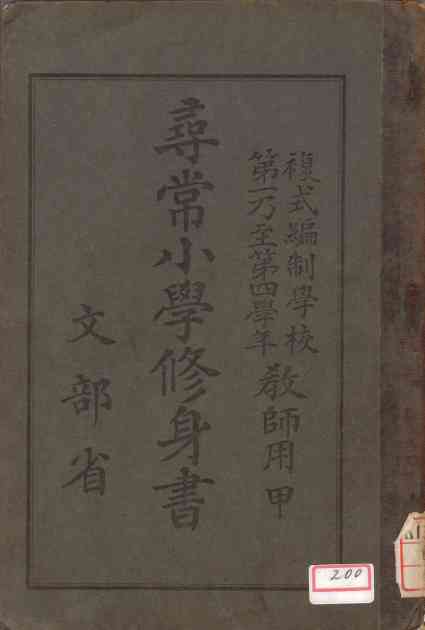 複式編制學校
第一乃至第四學年
教師用 甲
尋常小學修身書
文部省
200